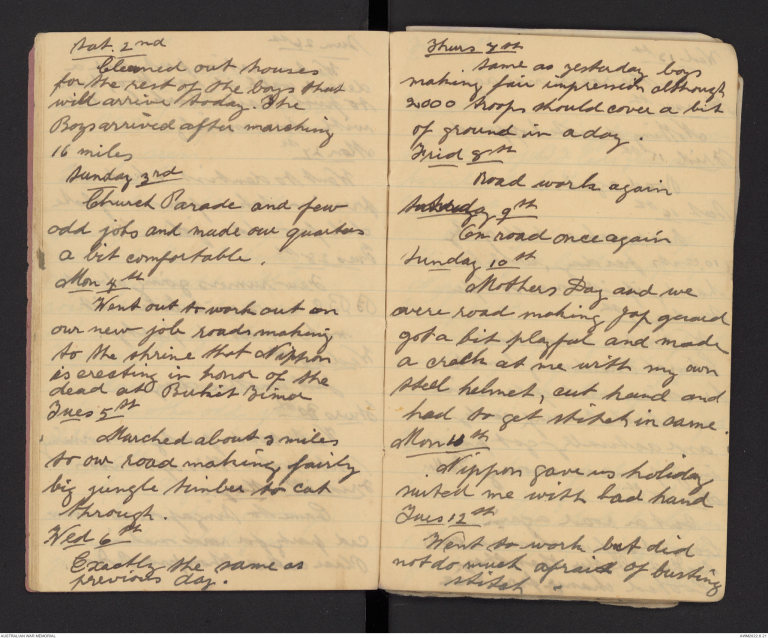 Sat. 2nd
Cleaned out houses
for the rest of the boys that
will arrive today. The
Boys arrived after marching
16 miles
Sunday 3rd
Church Parade and few
odd jobs and made our quarters
a bit comfortable.
Mon 4th
Went out to work out on
our new job roads making
to the shrine that Nippon
is erecting in honor of the
dead at Bukit Tima
Tues 5th
Marched about 3 miles
to our road making, fairly
big jungle timber to cut
through.
Wed 6th
Exactly the same as
previous day.
Thurs 7th
Same as yesterday boys
making fair impression although
2000 troops should cover a bit
of ground in a day.
Frid 8th
Road work again
Saturday 9th
On road once again
Sunday 10th
Mothers Day and we
were road making Jap guard
got a bit playful and made
a crack at me with my own
steel helmet, cut hand and
had to get stitch in same.
Mon 11th
Nippon gave us holiday
suited me with bad hand
Tues 12th
Went to work but did
not do much afraid of busting
stitch.
AUSTRALIAN WAR MEMORIAL
AWM2022.8.21